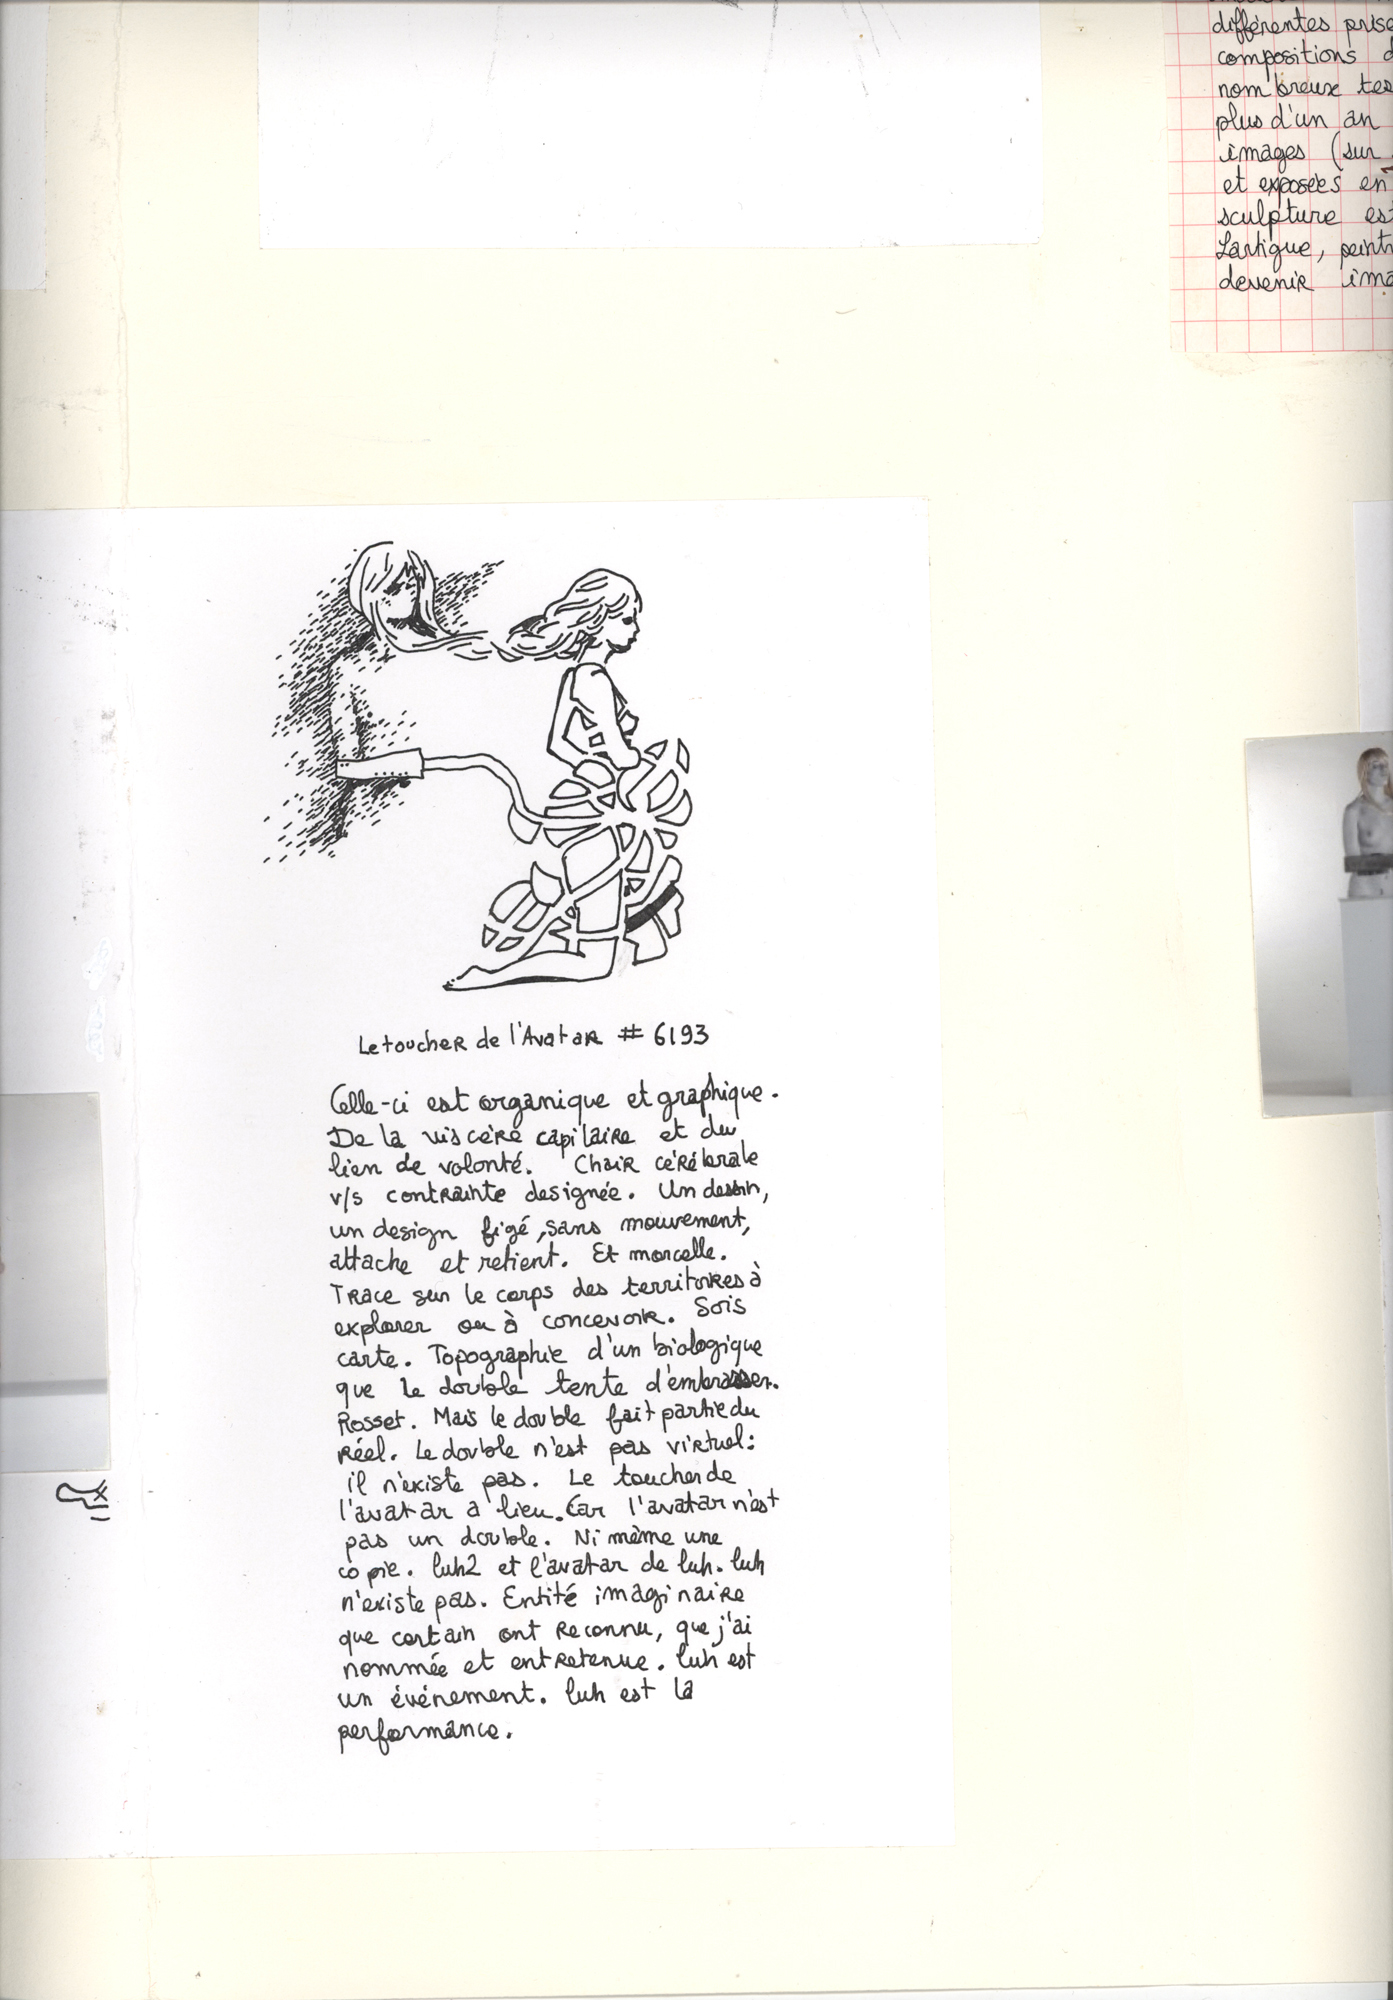 différentes
compositions
nombreux
plus d'un an
images (sur
et exposées en
sculpture
Lartigue,
devenir
Le toucher de l'Avatar # 6193
Celle-ci est organique et graphique.
De la viscère capilaire et du
lien de volonté. Chair cérébrale
v/s contrainte designée. Un dessin,
un design figé, sans mouvement,
attache et retient. Et morcelle.
Trace sur le corps des territoires à
explorer ou à concevoir. Sois
carte. Topographie d'un biologique
que le double tente d'embrasser.
Rosset. Mais le double fait partie du
réel. Le double n'est pas virtuel:
il n'existe pas. Le toucher de
l'avatar a lieu. Car l'avatar n'est
pas un double. Ni même une
copie. luh2 et l'avatar de luh. luh
n'existe pas. Entité imaginaire
que certain ont reconnu, que j'ai
nommée et entretenue. luh est
un événement. luh est la
performance.